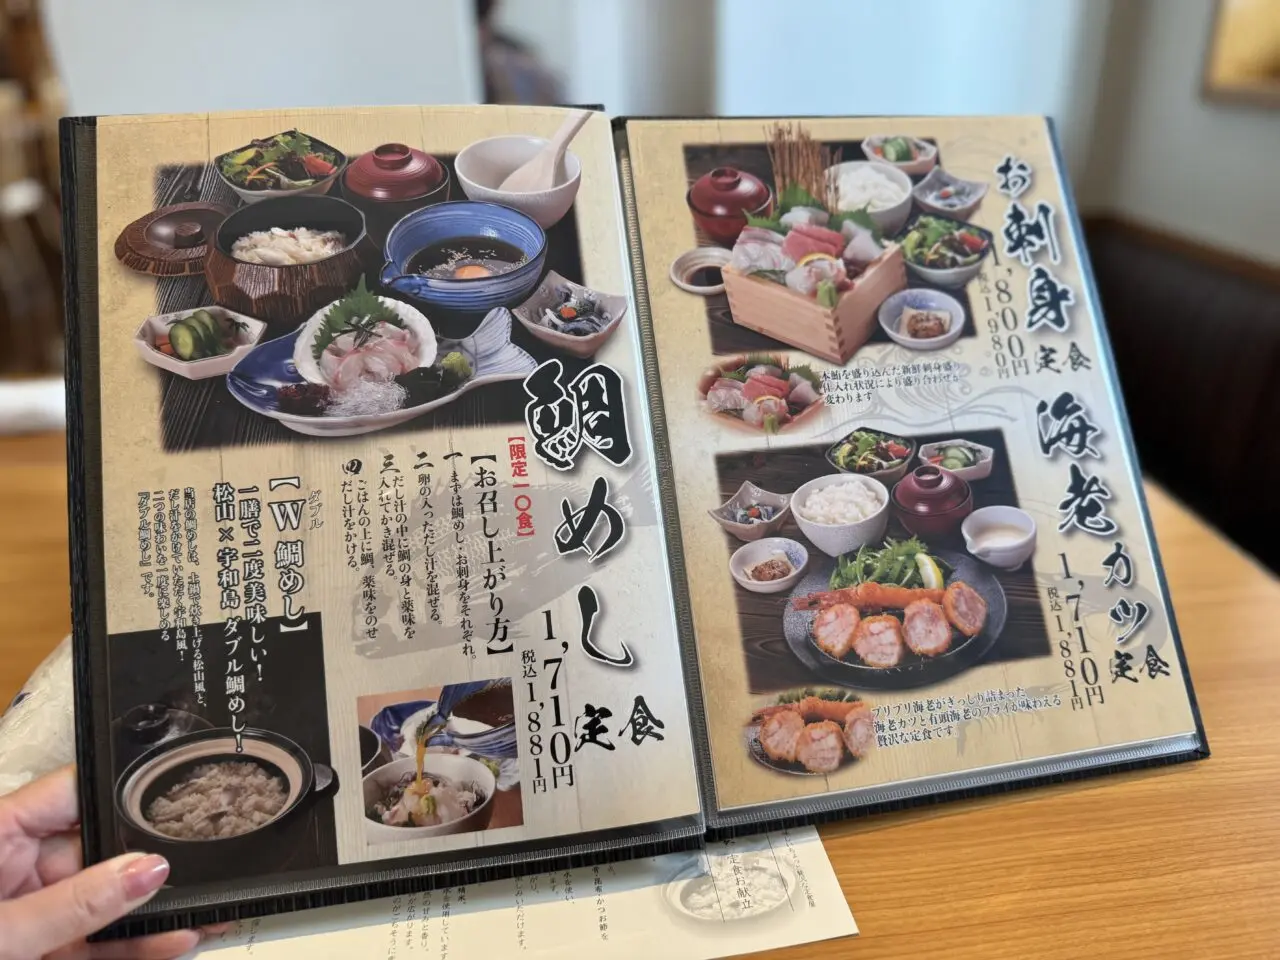 鯛めし定食
1,710円
税込1,881円
【限定一〇食】
【お召し上がり方】
一 まずは鯛めし・お刺身をそれぞれ。
二 卵の入っただし汁を混ぜる。
三 だし汁の中に鯛の身と薬味を
入れてかき混ぜる。
四 ごはんの上に鯛、薬味をのせ
だし汁をかける。
ダブル
【W鯛めし】
一膳で二度美味しい!
松山×宇和島 ダブル鯛めし!
当店の鯛めしは、土鍋で炊き上げる松山風と、
だし汁をかけていただく宇和島風!
二つの味わいを一度に楽しめる
「ダブル鯛めし」です。
お刺身定食
1,800円
税込1,980円
本鮪を盛り込んだ新鮮刺身盛り
仕入れ状況により盛り合わせが
変わります
海老カツ定食
1,710円
税込1,881円
プリプリ海老がぎっしり詰まった
海老カツと有頭海老のフライが味わえる
贅沢な定食です。
定食お献立